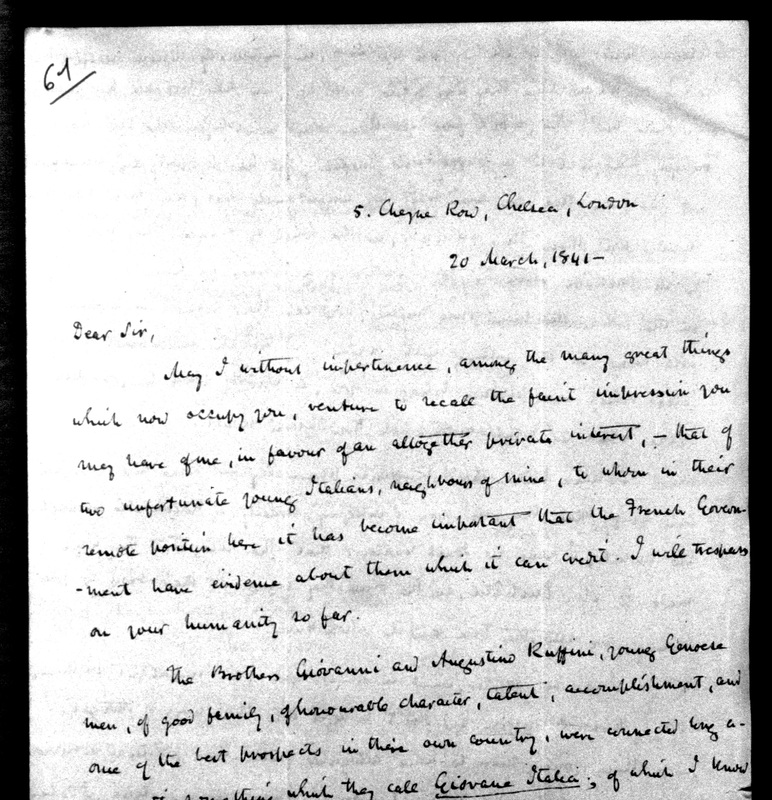 61
5. Cheyne Row, Chelsea, London
20 March, 1841 –
Dear Sir,
May I without impertinence, among the many great things
which now occupy you, venture to recall the faint impression you
may have of me, in favour of an altogether private interest, – that of
two unfortunate young Italians, neighbours of mine, to whom in their
remote position here it has become important that the French Govern-
-ment have evidence about them which it can credit. I will trespass
on your humanity so far.
The Brothers Giovanni and Augustino Ruffini, young Genoese
men, of good family, of honourable character, talent, accomplishment, and
one of the best prospects in their own country, were connected long a-
something which they call Giovane Italia; of which I know